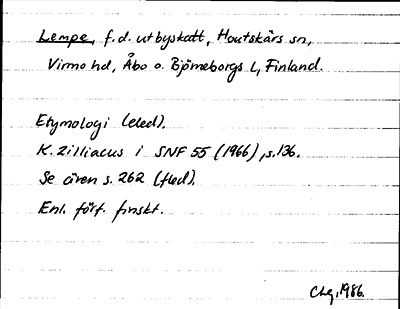 Lempe, f.d. utbyskatt, Houtskärs sn,
Virmo hd, Åbo o. Björneborgs l, Finland.
Etymologi (eled).
K. Zilliacus i SNF 55 (1966), s.136.
Se även s. 262 (fled).
Enl. förf. finskt.
CLg, 1986.